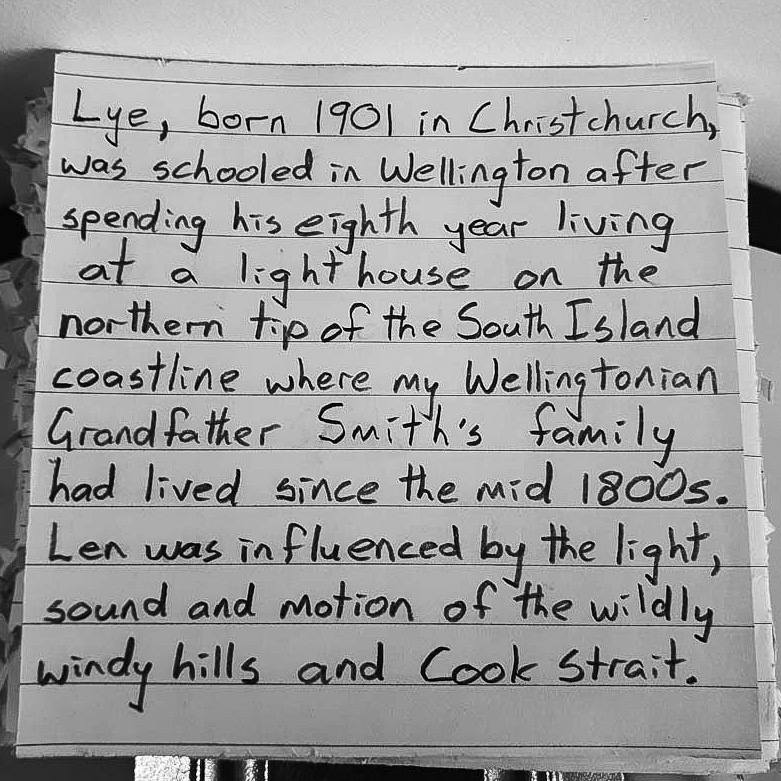 Lye, born 1901 in Christchurch,
was schooled in Wellington after
spending his eighth year living
at a lighthouse on the
northern tip of the South Island
coastline where my Wellingtonian
Grandfather Smith's family
had lived since the mid 1800s.
Len was influenced by the light,
sound and motion of the wildly
windy hills and Cook Strait.